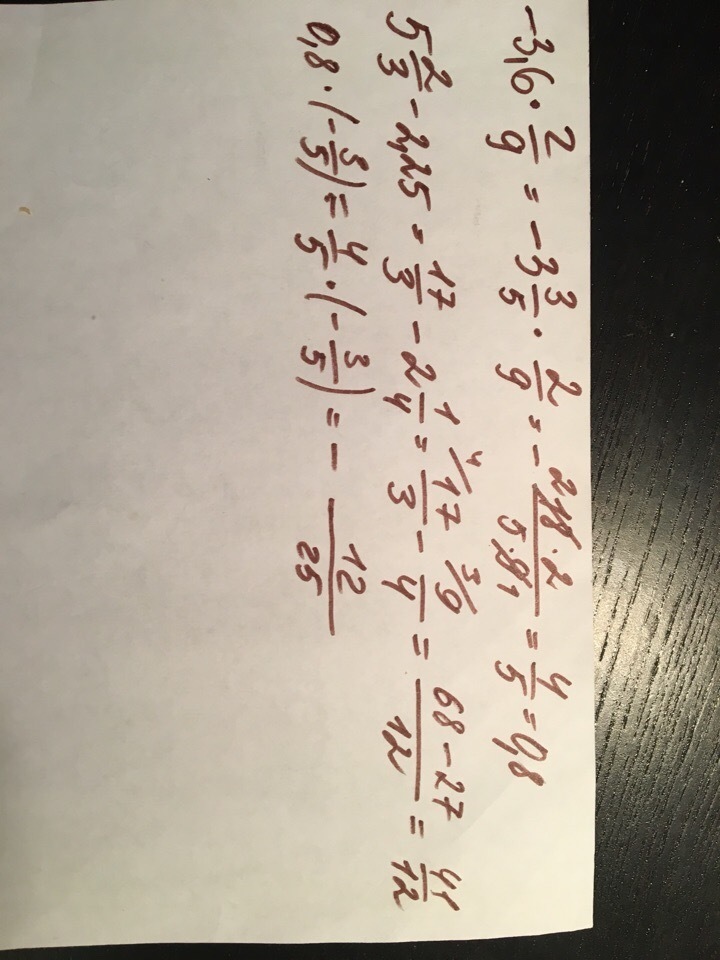 -3,6 · 2/9 = -3 3/5 · 2/9 = - (2 18 · 2)/(5 · 9 1) = 4/5 = 0,8
5 2/3 - 2,25 = 17/3 - 2 1/4 = 4/ 17/3 - 3/ 9/4 = (68 - 27)/12 = 41/12
0,8 · (-3/5) = 4/5 · (-3/5) = - 12/25